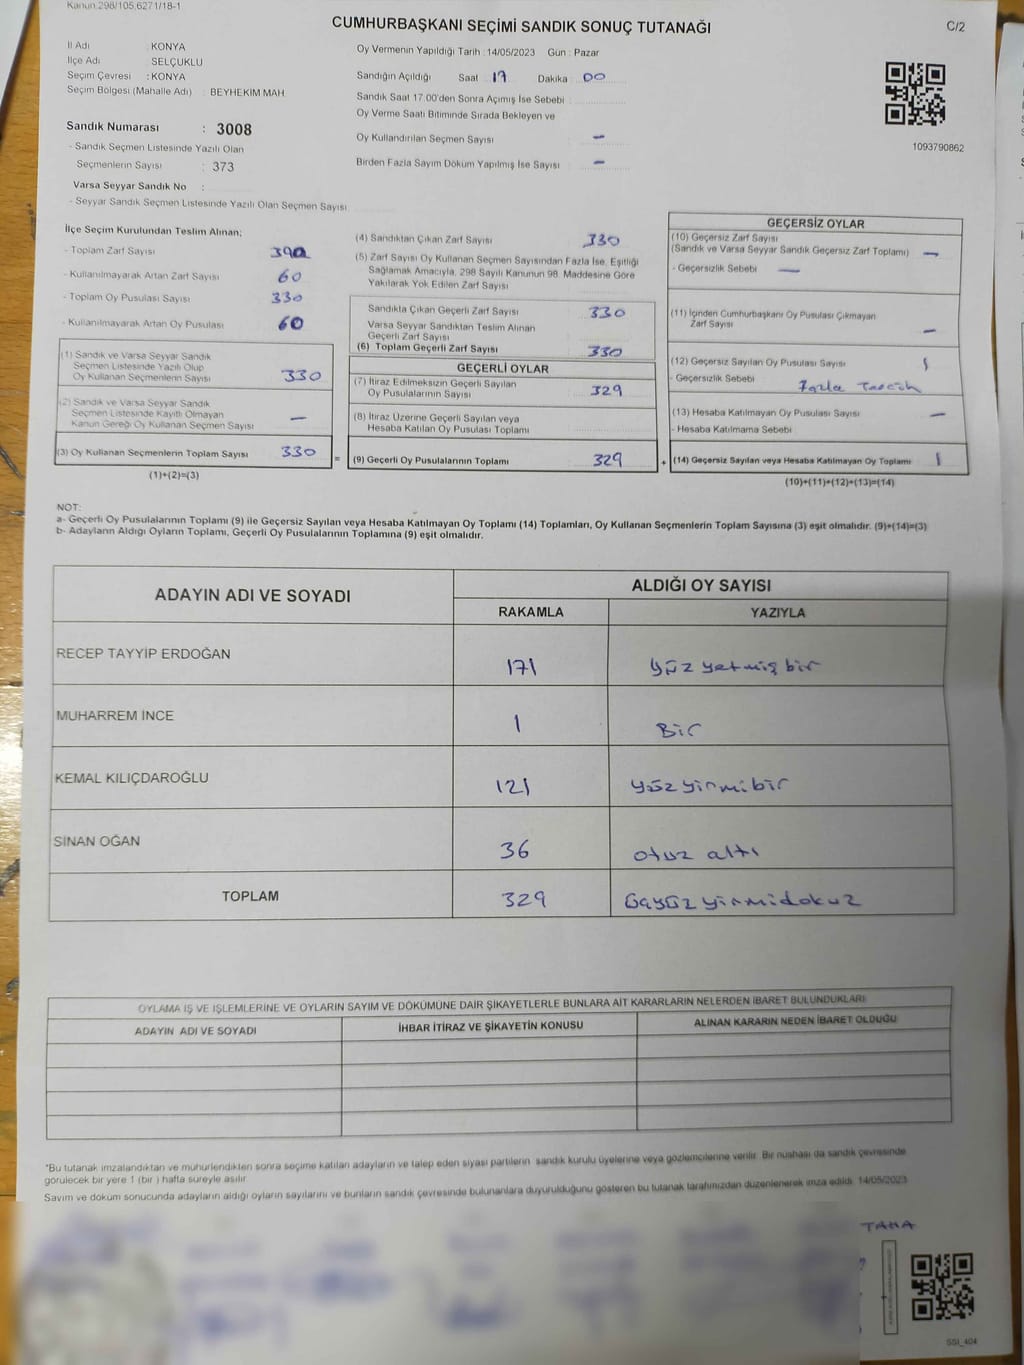 Kanun 298/105,6271/18-1
CUMHURBAŞKANI SEÇİMİ SANDIK SONUÇ TUTANAĞI
C/2
İl Adı : KONYA
İlçe Adı : SELÇUKLU
Seçim Çevresi : KONYA
Seçim Bölgesi (Mahalle Adı) : BEYHEKİM MAH.
Oy Vermenin Yapıldığı Tarih : 14/05/2023 Gün : Pazar
Sandığın Açıldığı Saat 17 Dakika 00
Sandık Saat 17:00'den Sonra Açımış İse Sebebi :
Oy Verme Saati Bitiminde Sırada Bekleyen ve
Oy Kullandırılan Seçmen Sayısı : –
Birden Fazla Sayım Döküm Yapılmış İse Sayısı : –
1093790862
Sandık Numarası : 3008
- Sandık Seçmen Listesinde Yazılı Olan
Seçmenlerin Sayısı : 373
Varsa Seyyar Sandık No :
- Seyyar Sandık Seçmen Listesinde Yazılı Olan Seçmen Sayısı
İlçe Seçim Kurulundan Teslim Alınan;
- Toplam Zarf Sayısı 390
- Kullanılmayarak Artan Zarf Sayısı 60
- Toplam Oy Pusulası Sayısı 330
- Kullanılmayarak Artan Oy Pusulası 60
(1) Sandık ve Varsa Seyyar Sandık
Seçmen Listesinde Yazılı Olup
Oy Kullanan Seçmenlerin Sayısı 330
(2) Sandık ve Varsa Seyyar Sandık
Seçmen Listesinde Kayıtlı Olmayan
Kanun Gereği Oy Kullanan Seçmen Sayısı –
(3) Oy Kullanan Seçmenlerin Toplam Sayısı 330
(1)+(2)=(3)
(4) Sandıktan Çıkan Zarf Sayısı 330
(5) Zarf Sayısı Oy Kullanan Seçmen Sayısından Fazla İse, Eşitliği
Sağlamak Amacıyla, 298 Sayılı Kanunun 98. Maddesine Göre
Yakılarak Yok Edilen Zarf Sayısı
Sandıkta Çıkan Geçerli Zarf Sayısı 330
Varsa Seyyar Sandıktan Teslim Alınan
Geçerli Zarf Sayısı
(6) Toplam Geçerli Zarf Sayısı 330
GEÇERLİ OYLAR
(7) İtiraz Edilmeksizin Geçerli Sayılan
Oy Pusulalarının Sayısı 329
(8) İtiraz Üzerine Geçerli Sayılan veya
Hesaba Katılan Oy Pusulası Toplamı
= (9) Geçerli Oy Pusulalarının Toplamı 329
GEÇERSİZ OYLAR
(10) Geçersiz Zarf Sayısı
(Sandık ve Varsa Seyyar Sandık Geçersiz Zarf Toplamı) –
- Geçersizlik Sebebi –
(11) İçinden Cumhurbaşkanı Oy Pusulası Çıkmayan
Zarf Sayısı –
(12) Geçersiz Sayılan Oy Pusulası Sayısı 1
- Geçersizlik Sebebi Fazla Tercih
(13) Hesaba Katılmayan Oy Pusulası Sayısı –
- Hesaba Katılmama Sebebi
+ (14) Geçersiz Sayılan veya Hesaba Katılmayan Oy Toplamı 1
(10)+(11)+(12)+(13)=(14)
NOT:
a- Geçerli Oy Pusulalarının Toplamı (9) ile Geçersiz Sayılan veya Hesaba Katılmayan Oy Toplamı (14) Toplamları, Oy Kullanan Seçmenlerin Toplam Sayısına (3) eşit olmalıdır. (9)+(14)=(3)
b- Adayların Aldığı Oyların Toplamı, Geçerli Oy Pusulalarının Toplamına (9) eşit olmalıdır.
ADAYIN ADI VE SOYADI
ALDIĞI OY SAYISI
RAKAMLA YAZIYLA
RECEP TAYYİP ERDOĞAN 171 yüz yetmiş bir
MUHARREM İNCE 1 Bir
KEMAL KILIÇDAROĞLU 121 yüz yirmi bir
SİNAN OĞAN 36 otuz altı
TOPLAM 329 üçyüz yirmidokuz
OYLAMA İŞ VE İŞLEMLERİNE VE OYLARIN SAYIM VE DÖKÜMÜNE DAİR ŞİKAYETLERLE BUNLARA AİT KARARLARIN NELERDEN İBARET BULUNDUKLARI
ADAYIN ADI VE SOYADI İHBAR İTİRAZ VE ŞİKAYETİN KONUSU ALINAN KARARIN NEDEN İBARET OLDUĞU
*Bu tutanak imzalandıktan ve mühürlendikten sonra seçime katılan adayların ve talep eden siyasi partilerin sandık kurulu üyelerine veya gözlemcilerine verilir. Bir nüshası da sandık çevresinde
görülecek bir yere 1 (bir ) hafta süreyle asılır.
Sayım ve döküm sonucunda adayların aldığı oyların sayılarını ve bunların sandık çevresinde bulunanlara duyurulduğunu gösteren bu tutanak tarafımızdan düzenlenerek imza edildi. 14/05/2023
TAHA
SSI_404